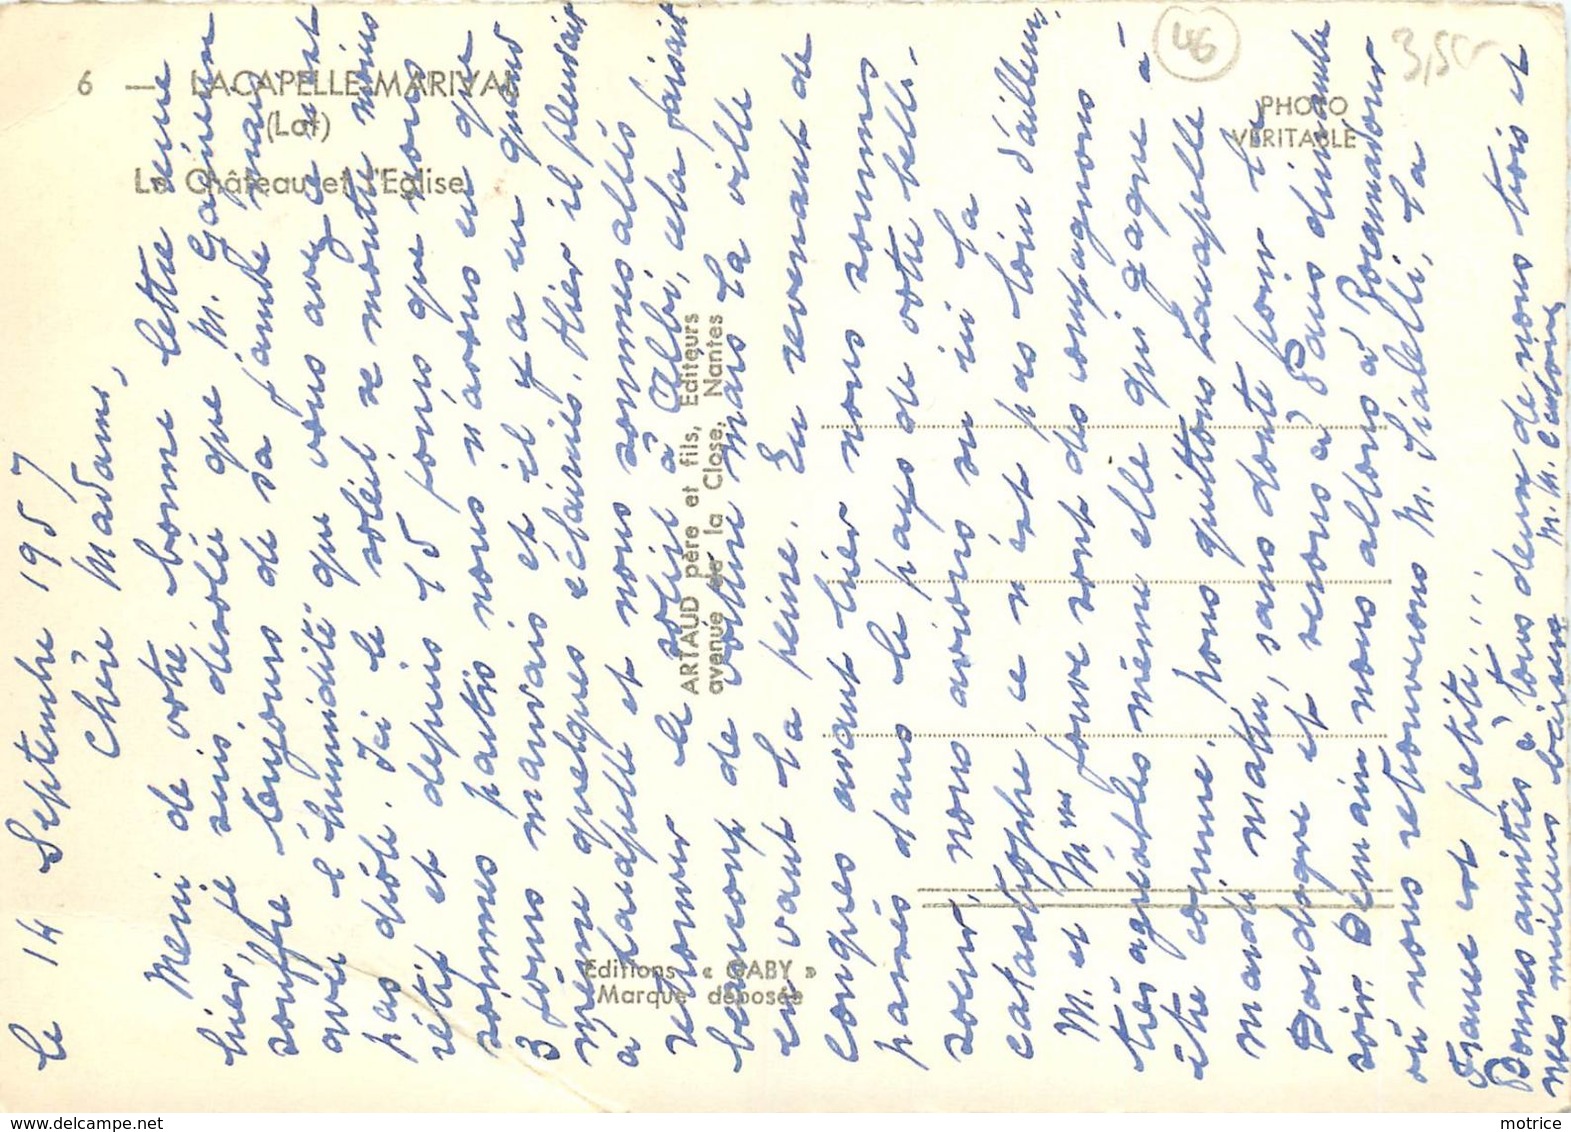 6 — LACAPELLE-MARIVAL
(Lot)
Le Château et l'Eglise
PHOTO
VERITABLE
46
3,50
ARTAUD père et fils, Editeurs
avenue de la Close, Nantes
Editions « GABY »
Marque déposée
le 14 Septembre 1957
Chère Madame,
Merci de votre bonne lettre reçue
hier, je suis désolée que M.
souffre toujours de sa jambe, mais
avec l'humidité que vous avez ce n'est
pas drôle. Ici le soleil se montre moins
rétif et depuis 15 jours que nous
sommes partis nous n'avons eu que
3 jours mauvais et il y a eu quand
même quelques éclaircies. Hier il pleuvait
à Lacapelle et nous sommes allés
retrouver le soleil à Albi, cela faisait
beaucoup de voiture mais la ville
en vaut la peine. En revenant de
Conques avant hier nous sommes
passés dans le pays de votre belle-
soeur, nous avions su ici la
catastrophe, ce n'est pas loin d'ailleurs.
M. et Mme sont des compagnons
très agréables même elle qui gagne à
être connue. Nous quittons Lacapelle
mardi matin, sans doute pour la
Dordogne et serons à Paris dimanche
soir. Demain nous allons à Rocamadour
où nous retrouverons M. la
France est petite...
Bonnes amitiés à tous deux de nous trois et
mes meilleurs baisers. M.M.
motrice